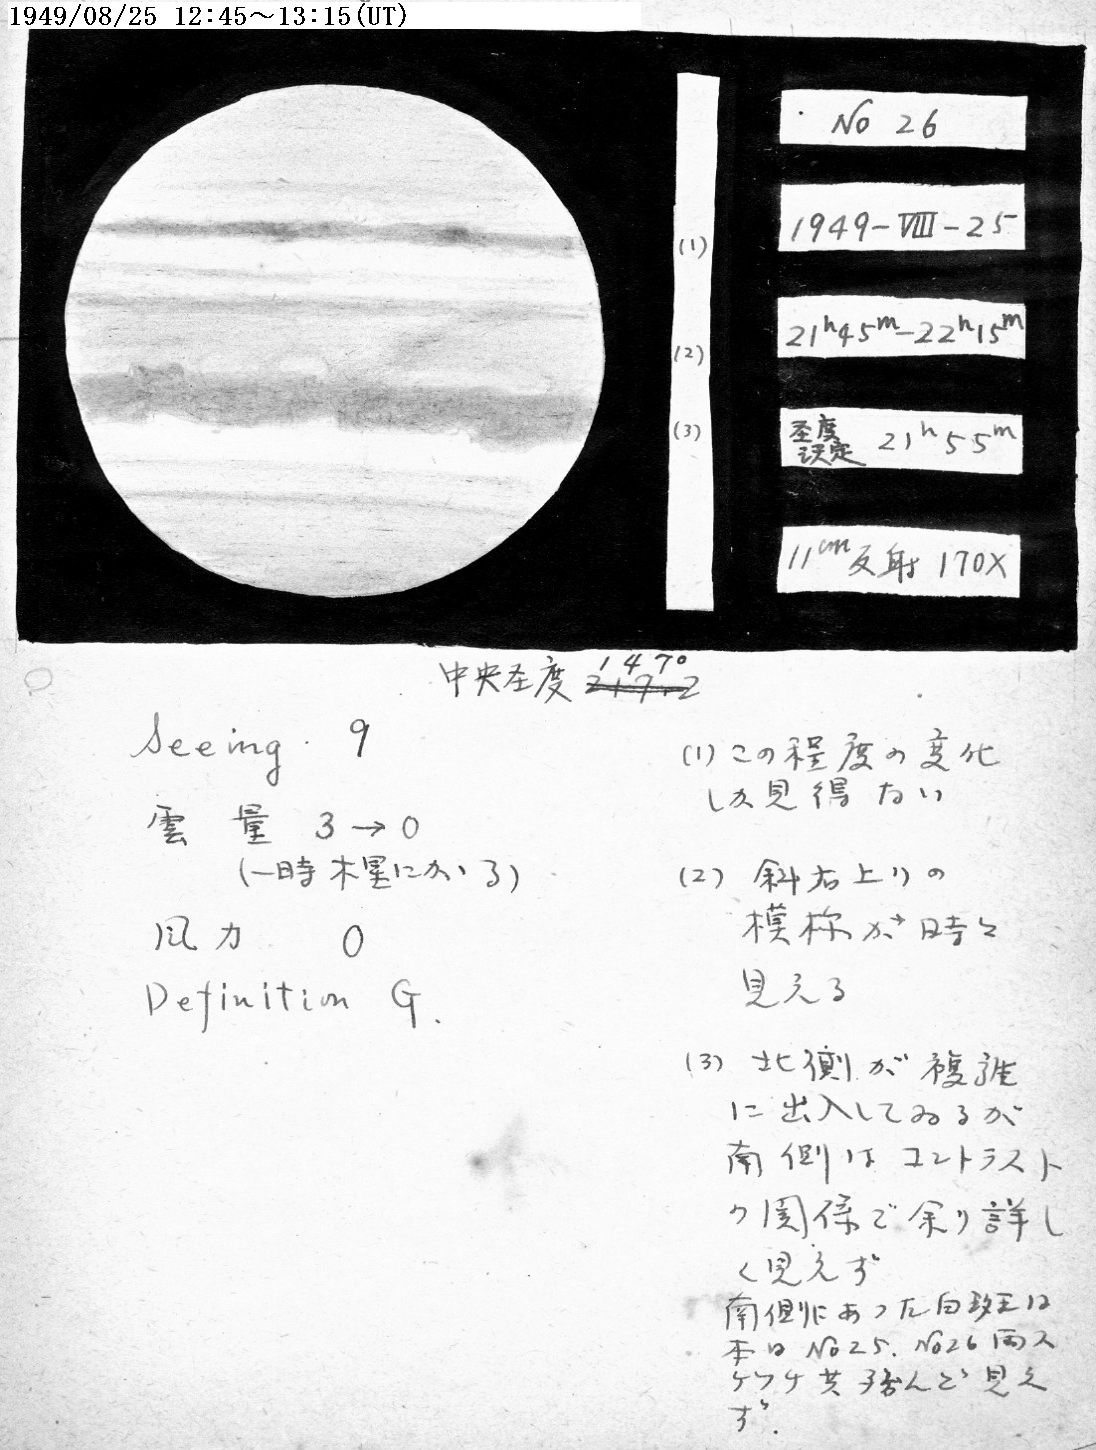 1949/08/25 12:45～13:15(UT)
No 26
1949-Ⅷ-25
21h45m-22h15m
圣度
決定 21h55m
11cm反射 170X
(1)
(2)
(3)
中央圣度 147°
217.2
Seeing 9
雲量 3→0
(一時木星にかゝる)
風力 0
Definition G.
(1) この程度の変化
しか見得ない
(2) 斜右上りの
模様が時々
見える
(3) 北側が複雑
に出入してゐるが
南側はコントラスト
の関係で余り詳し
く見えず
南側にあった白斑は
本日 No25. No26 両ス
ケッチ共殆んど見え
ず.